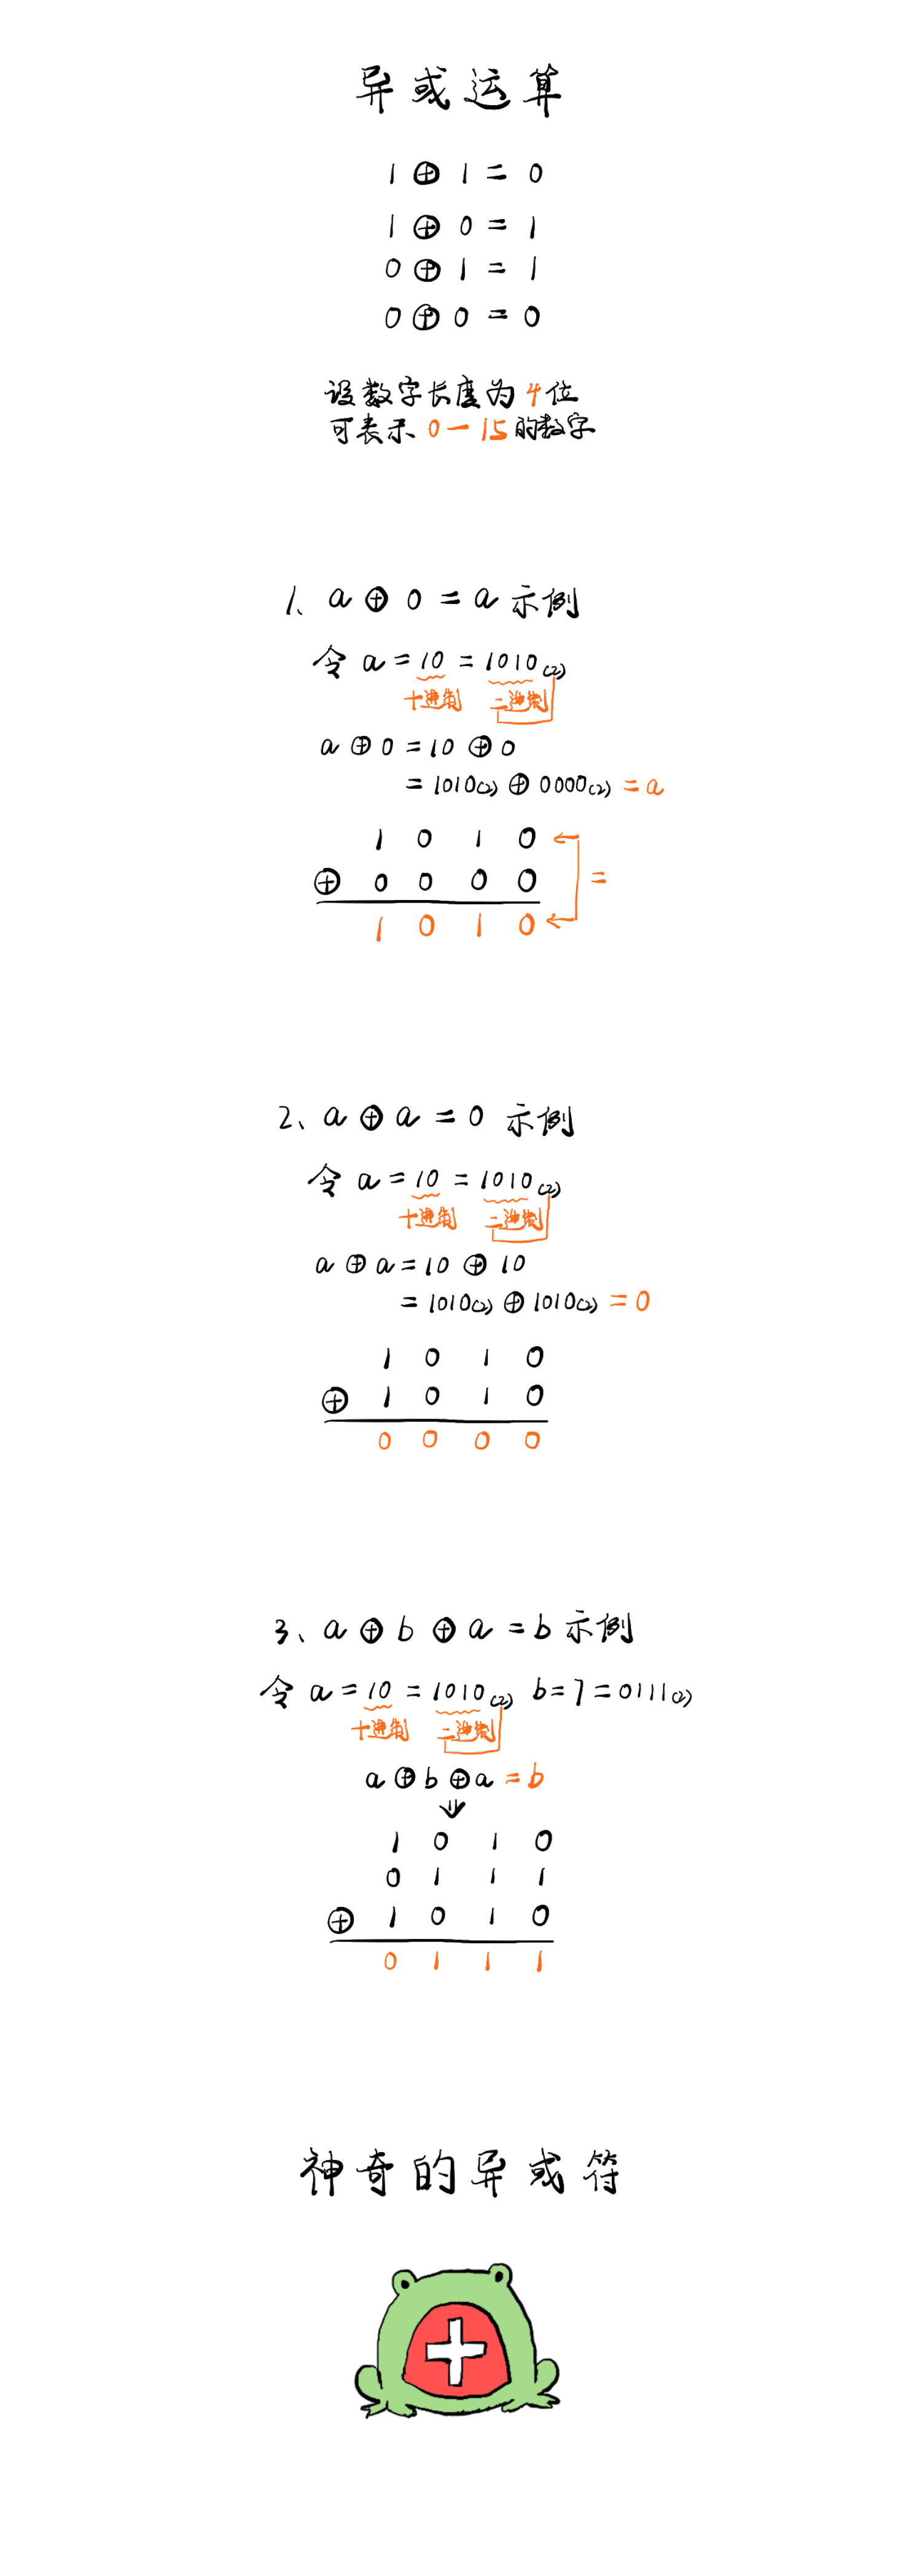 异或运算
1 ⊕ 1 = 0
1 ⊕ 0 = 1
0 ⊕ 1 = 1
0 ⊕ 0 = 0
设数字长度为4位
可表示 0-15 的数字
1、a ⊕ 0 = a 示例
令 a = 10 = 1010(2)
十进制 二进制
a ⊕ 0 = 10 ⊕ 0
= 1010(2) ⊕ 0000(2) = a
1 0 1 0
⊕ 0 0 0 0 =
1 0 1 0
2、a ⊕ a = 0 示例
令 a = 10 = 1010(2)
十进制 二进制
a ⊕ a = 10 ⊕ 10
= 1010(2) ⊕ 1010(2) = 0
1 0 1 0
⊕ 1 0 1 0
0 0 0 0
3、a ⊕ b ⊕ a = b 示例
令 a = 10 = 1010(2) b = 7 = 0111(2)
十进制 二进制
a ⊕ b ⊕ a = b
1 0 1 0
0 1 1 1
⊕ 1 0 1 0
0 1 1 1
神奇的异或符